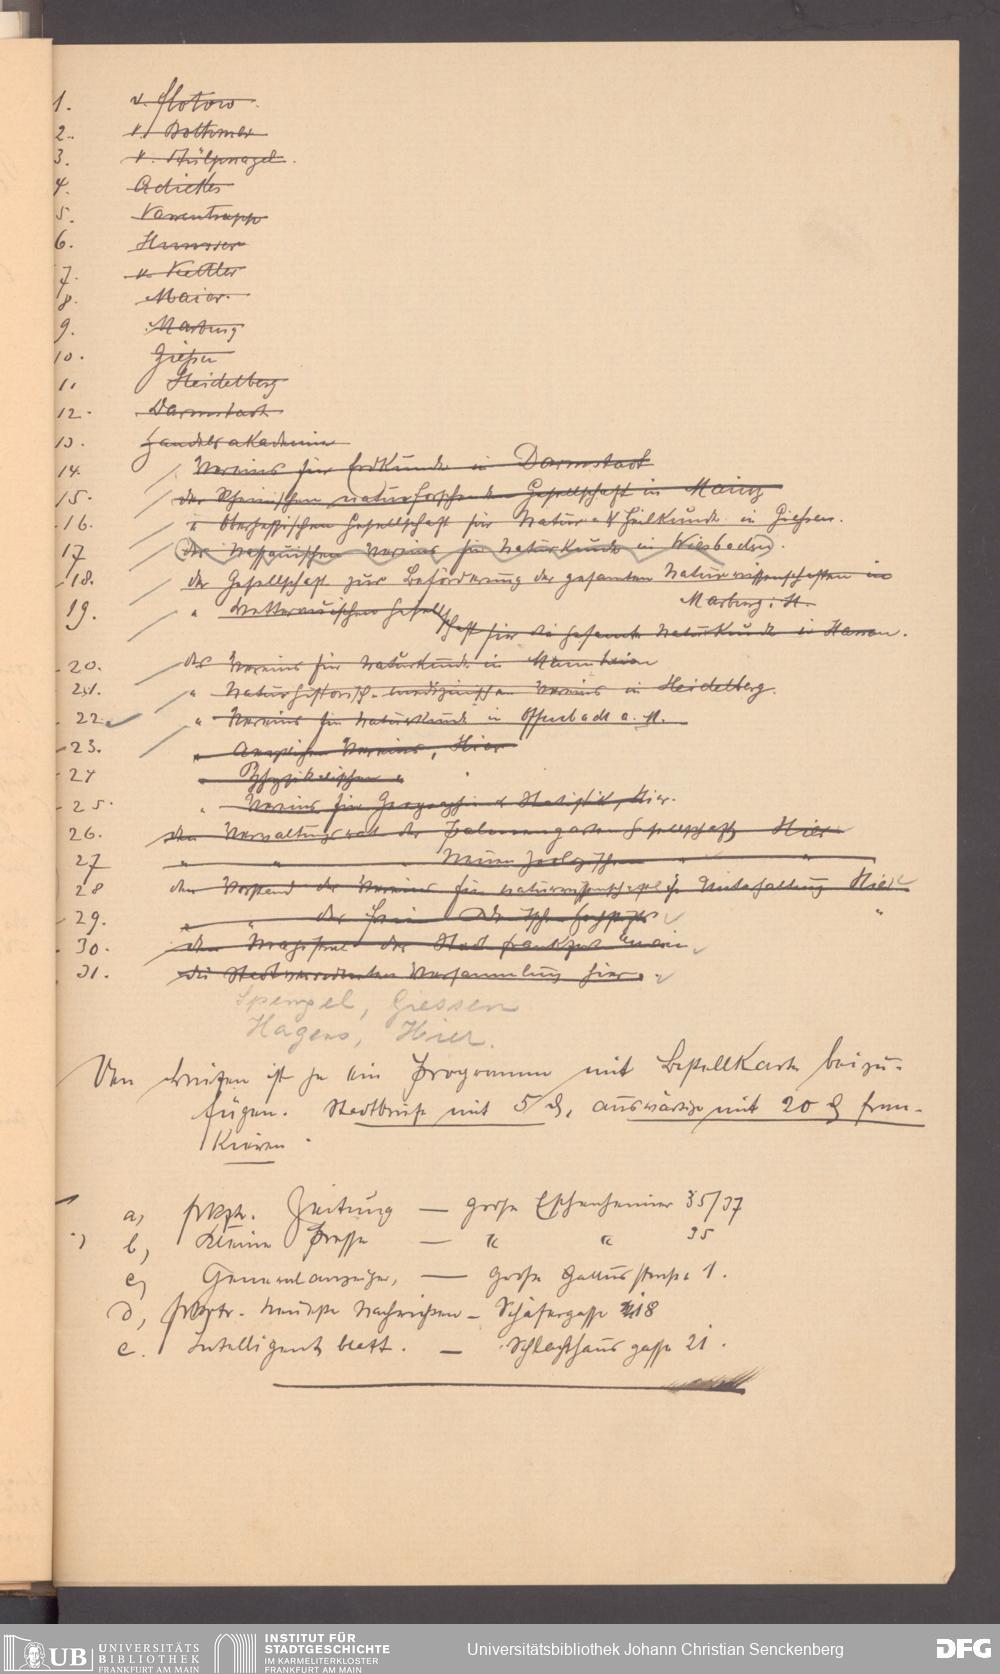 1. v. Flotow.
2. v. Bothmer
3. v. Stülpnagel.
4. Adickes
5. Varrentrapp
6. Humser
7. v. Kettler
8. Maier.
9. Marburg
10. Gießen
11 Heidelberg
12. Darmstadt
13. Handelsakademie
14. Vereins für Erdkunde in Darmstadt
15. der Rheinischen naturforschenden Gesellschaft in Mainz
16. " Oberhessischen Gesellschaft für Natur- & Heilkunde in Giessen.
17 des Nassauischen Vereins für Naturkunde in Wiesbaden.
18. der Gesellschaft zur Beförderung der gesamten Naturwissenschaften in
Marburg i. H.
19. " Wetterauischen Gesellschaft für die gesamte Naturkunde in Hanau.
20. des Vereins für Naturkunde in Mannheim
21. " Naturhistorisch-medizinischen Vereins in Heidelberg.
22 " Vereins für Naturkunde in Offenbach a. M.
23. " Aerztlichen Vereins, Hier
24 " Physikalischen "
25. " Vereins für Geographie & Statistik, Hier.
26. den Verwaltungsrat der Palmengarten Gesellschaft Hier
27 " " " Neuen Zoologischen " "
28 den Vorstand des Vereins für naturwissenschaftliche Unterhaltung Hier
29. " " des Freien Deutschen Hochstifts "
30. den Magistrat der Stadt Frankfurt a/Main
31. die Stadtverordneten Versammlung hier.
Spengel, Giessen
Hagens, Hier.
Den ist je ein Programm mit Bestellkarte beizu-
fügen. Stadtbriefe mit 5 ₰, auswärtige mit 20 ₰ fran-
kieren.
a, Frkftr. Zeitung — große Eschenheimer 35/37
b, Kleine Presse — " " 35
c, Generalanzeiger, — große Gallusstrasse 1.
d, Frkftr. neueste Nachrichten - Schäfergasse 18
e. Intelligenzblatt. — Schlachthausgasse 21.
UB UNIVERSITÄTS
BIBLIOTHEK
FRANKFURT AM MAIN
INSTITUT FÜR
STADTGESCHICHTE
IM KARMELITERKLOSTER
FRANKFURT AM MAIN
Universitätsbibliothek Johann Christian Senckenberg
DFG